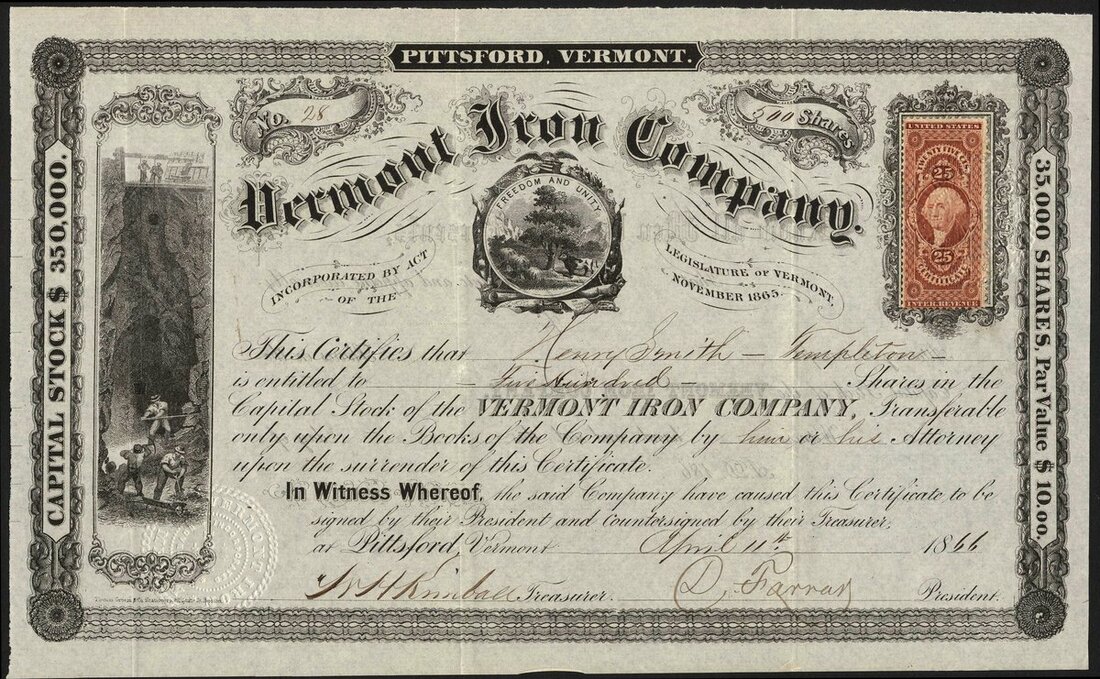 PITTSFORD, VERMONT.
No. 28
500 Shares
Vermont Iron Company.
UNITED STATES
TWENTY FIVE CTS.
25
25
CERTIFICATE
INTER. REVENUE
FREEDOM AND UNITY
INCORPORATED BY ACT
OF THE
LEGISLATURE OF VERMONT,
NOVEMBER 1865.
CAPITAL STOCK $ 350,000.
35,000 SHARES, Par Value $ 10.00.
This Certifies that Henry Smith — Templeton —
is entitled to — Five Hundred — Shares in the
Capital Stock of the VERMONT IRON COMPANY, Transferable
only upon the Books of the Company by him or his Attorney
upon the surrender of this Certificate.
In Witness Whereof, the said Company have caused this Certificate to be
signed by their President and Countersigned by their Treasurer,
at Pittsford, Vermont April 11th 1866
Kimball Treasurer. D. Farrar President.
VERMONT IRON